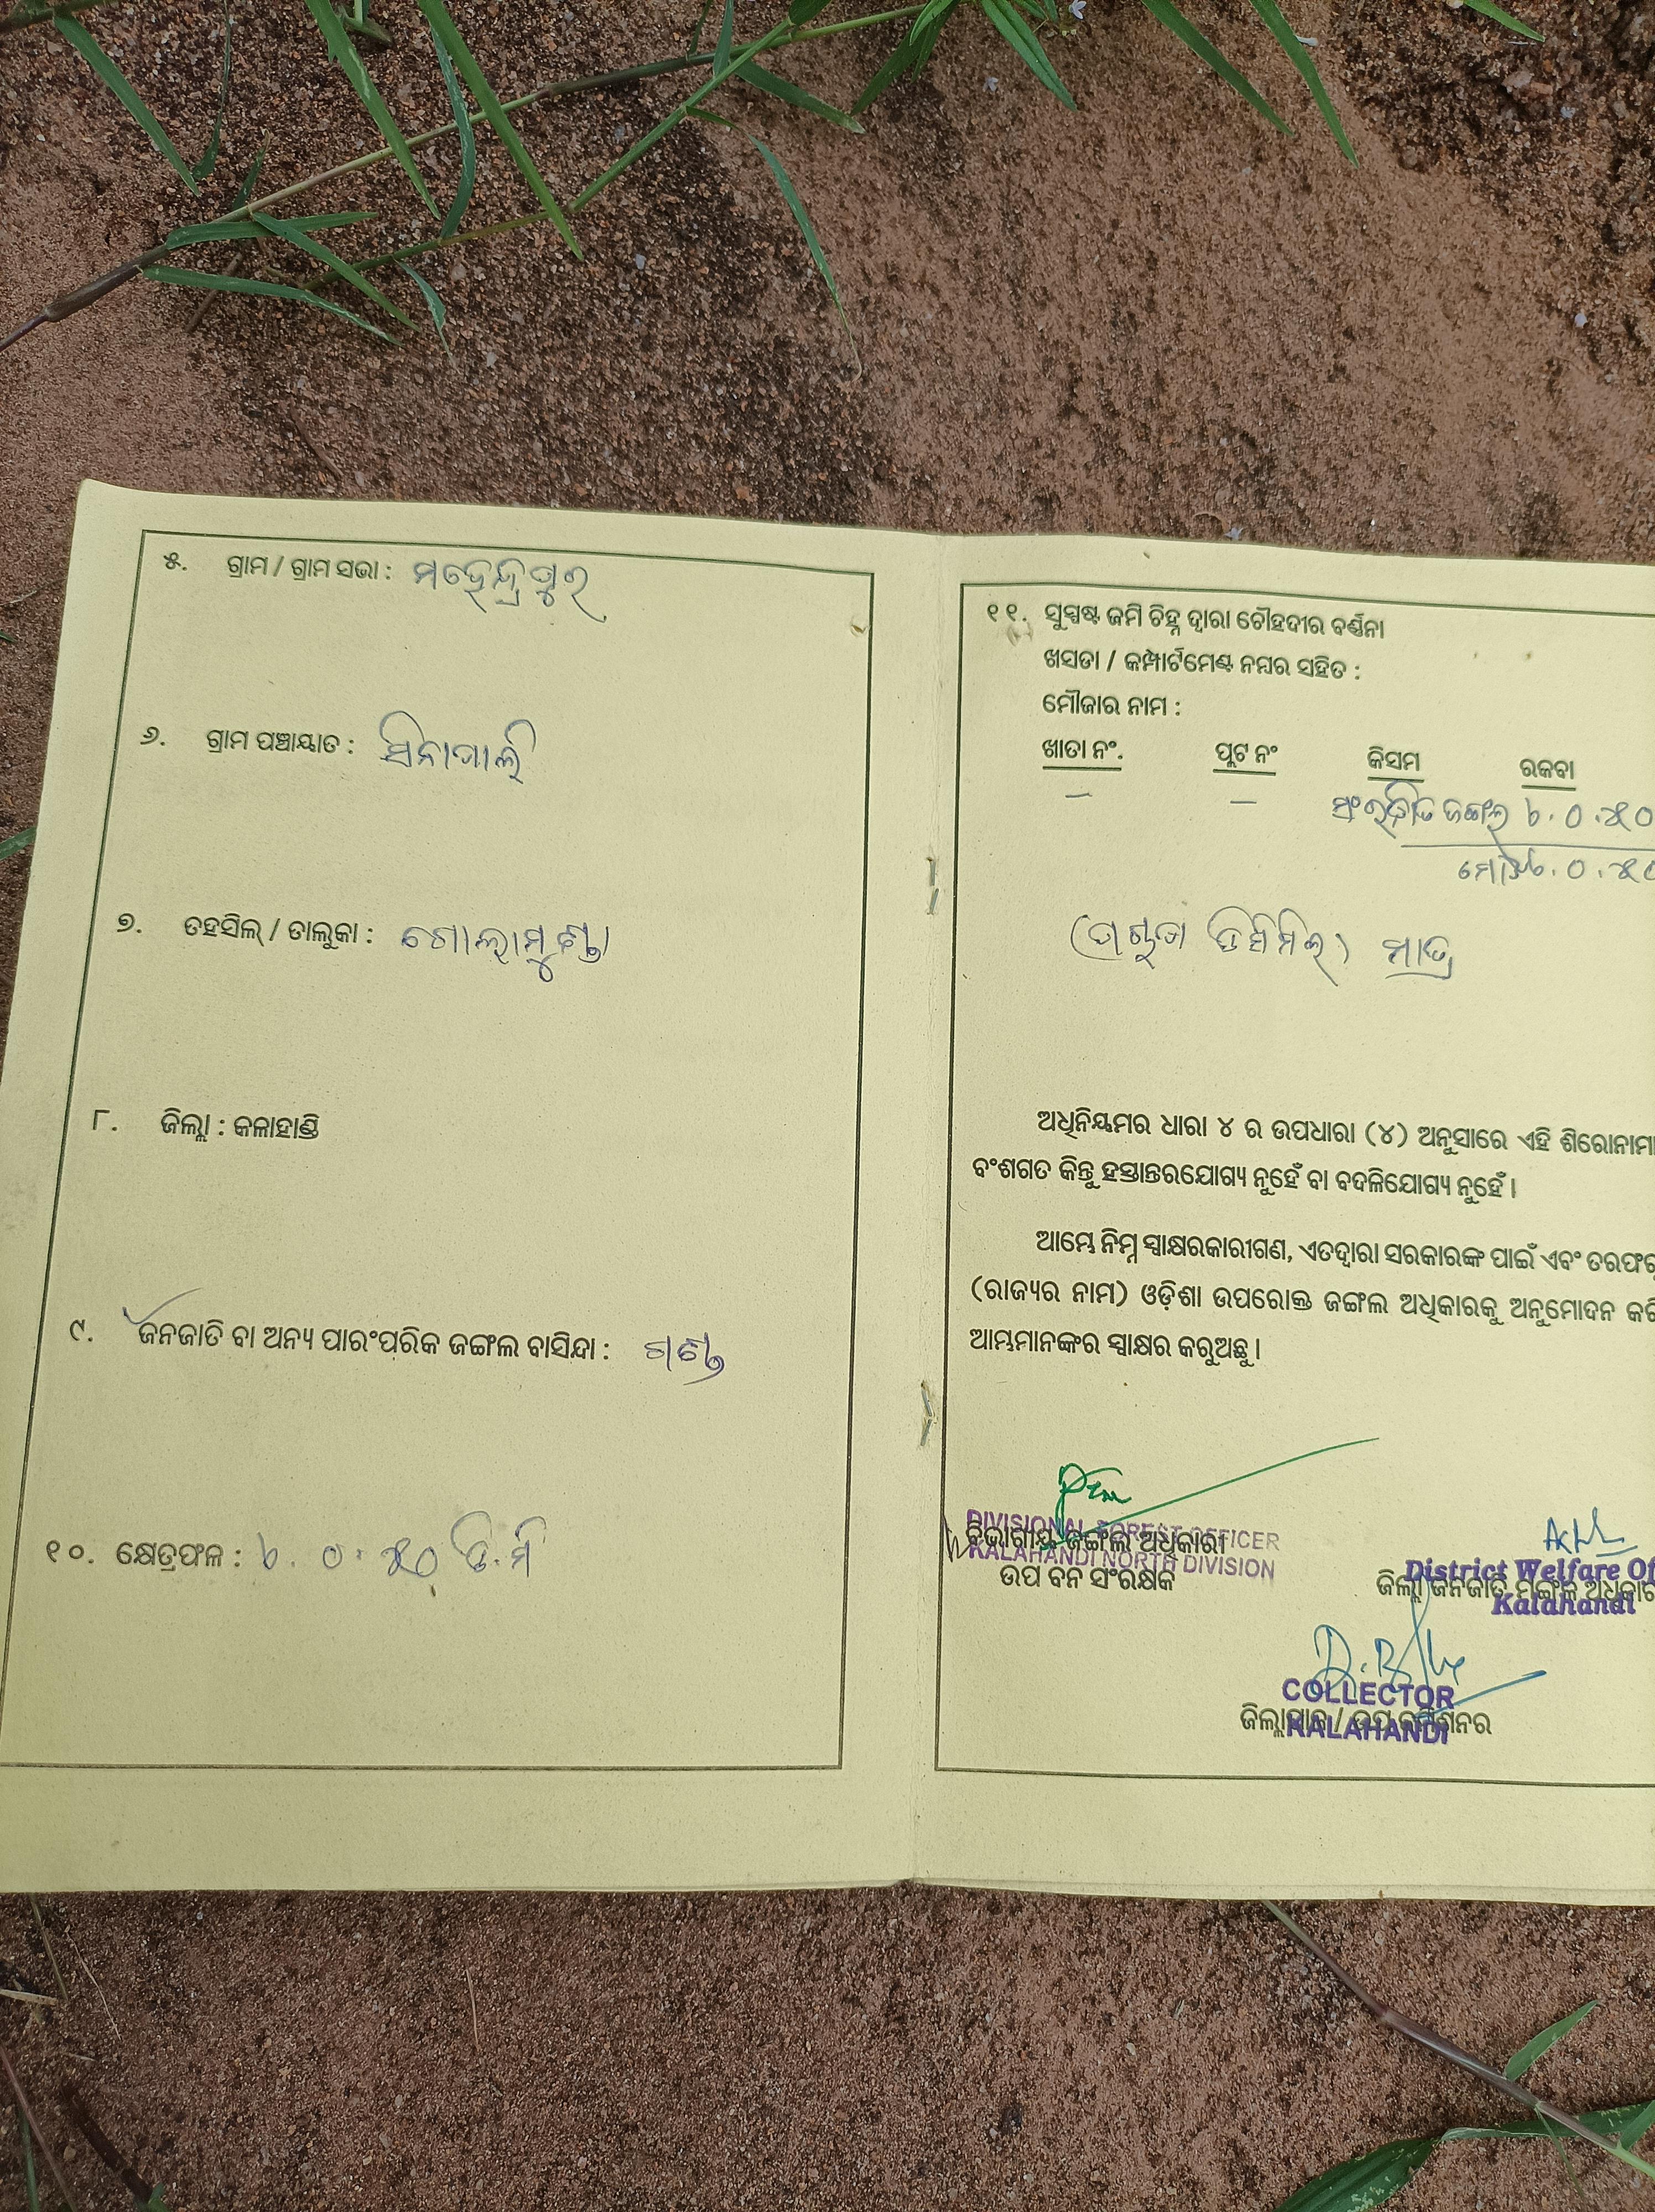 ୫. ଗ୍ରାମ / ଗ୍ରାମ ସଭା : ମହେନ୍ଦ୍ରପୁର
୬. ଗ୍ରାମ ପଞ୍ଚାୟାତ : ସିନାପାଲି
୭. ତହସିଲ୍ / ତାଲୁକା : ଗୋଲାମୁଣ୍ଡା
୮. ଜିଲ୍ଲା : କଳାହାଣ୍ଡି
୯. ଜନଜାତି ବା ଅନ୍ୟ ପାରଂପରିକ ଜଙ୍ଗଲ ବାସିନ୍ଦା : ଗଣ୍ଡ
୧୦. କ୍ଷେତ୍ରଫଳ : ୦.୫୦ ଡି.ମି
୧୧. ସୁସ୍ପଷ୍ଟ ଜମି ଚିହ୍ନ ଦ୍ଵାରା ଚୌହଦୀର ବର୍ଣ୍ଣନା
ଖସଡା / କମ୍ପାର୍ଟମେଣ୍ଟ ନମ୍ବର ସହିତ :
ମୌଜାର ନାମ :
ଖାତା ନଂ. ପ୍ଲଟ ନଂ କିସମ ରକବା
— — ସଂରକ୍ଷିତ ଜଙ୍ଗଲ ୦.୫୦
ମୋଟ ୦.୫୦
ଡିସିମିଲ) ମାତ୍ର
ଅଧିନିୟମର ଧାରା ୪ ର ଉପଧାରା (୪) ଅନୁସାରେ ଏହି ଶିରୋନାମା
ବଂଶଗତ କିନ୍ତୁ ହସ୍ତାନ୍ତରଯୋଗ୍ୟ ନୁହେଁ ବା ବଦଳିଯୋଗ୍ୟ ନୁହେଁ ।
ଆମ୍ଭେ ନିମ୍ନ ସ୍ଵାକ୍ଷରକାରୀଗଣ, ଏତଦ୍ଵାରା ସରକାରଙ୍କ ପାଇଁ ଏବଂ ତରଫରୁ
(ରାଜ୍ୟର ନାମ) ଓଡ଼ିଶା ଉପରୋକ୍ତ ଜଙ୍ଗଲ ଅଧିକାରକୁ ଅନୁମୋଦନ କରି
ଆମ୍ଭମାନଙ୍କର ସ୍ଵାକ୍ଷର କରୁଅଛୁ ।
DIVISIONAL FOREST OFFICER
ବିଭାଗୀୟ ଜଙ୍ଗଲ ଅଧିକାରୀ
KALAHANDI NORTH DIVISION
ଉପ ବନ ସଂରକ୍ଷକ
District Welfare Of
ଜିଲ୍ଲା ଜନଜାତି ମଙ୍ଗଳ ଅଧିକାରୀ
Kalahandi
COLLECTOR
ଜିଲ୍ଲାପାଳ / ଉପ କମିଶନର
KALAHANDI